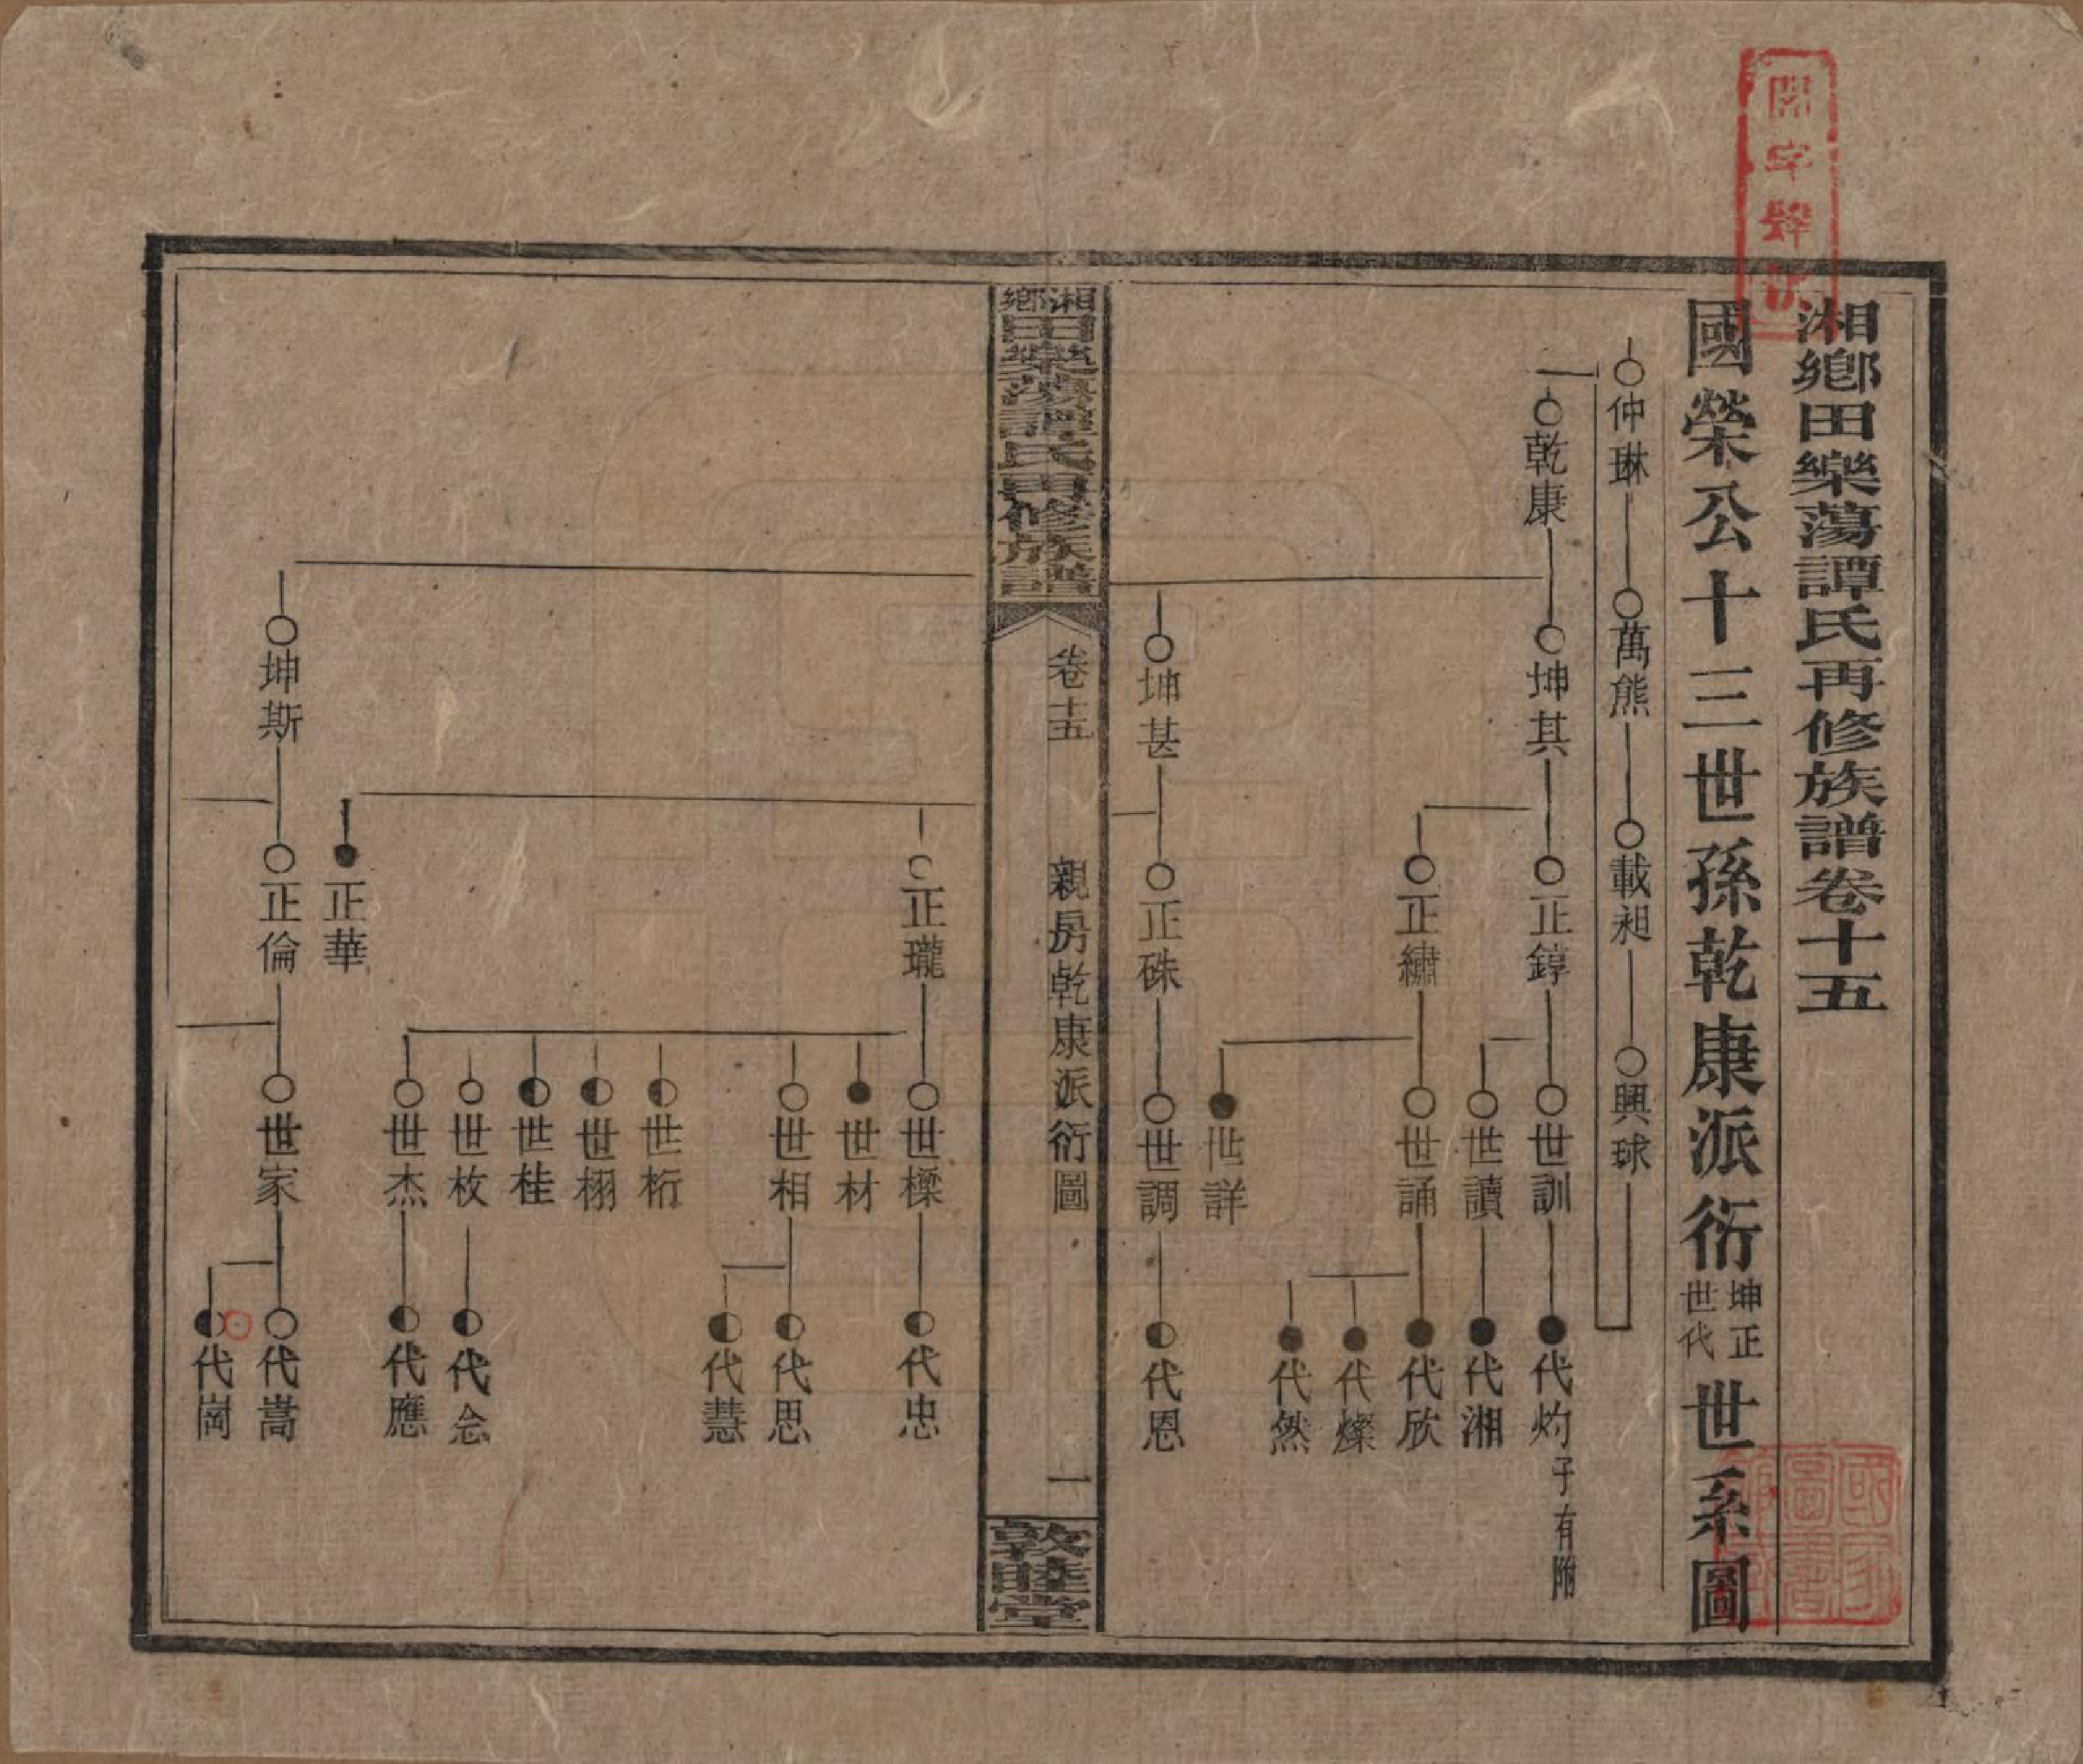 湘鄉田樂蕩譚氏再修族譜卷十五
國榮公十三世孫乾康派衍坤正世代世系圖
仲琳 萬熊 載昶 興球
乾康 坤其 正錞 世訓 代灼 子有附
世讀 代湘
正繡 世誦 代欣
代燦
代然
世詳
坤甚 正硃 世調 代恩
湘鄉田樂蕩譚氏再修族譜 卷十五 親房乾康派衍圖 一 敦睦堂
正瓏 世樑 代忠
世材
世相 代思
代慧
世桁
世栩
世桂
世枚 代念
世杰 代應
正華
坤斯 正倫 世家 代嵩
代崗